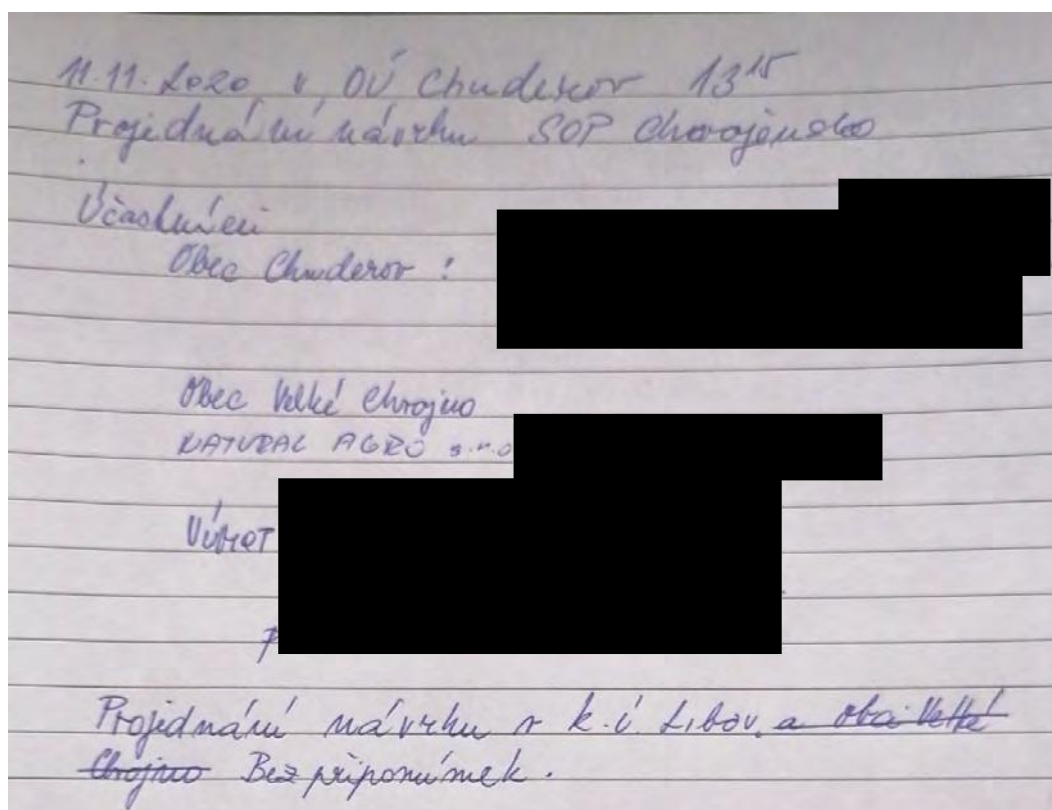 11.11. 2020 v OÚ Chuderov 13¹⁵
Projednání návrhu SOP Chvojensko
Účastníci
Obec Chuderov :
Obec Velké Chvojno
NATURAL AGRO s.r.o
Projednání návrhu v k.ú. Libov. a obci Velké
Chvojno Bez připomínek.